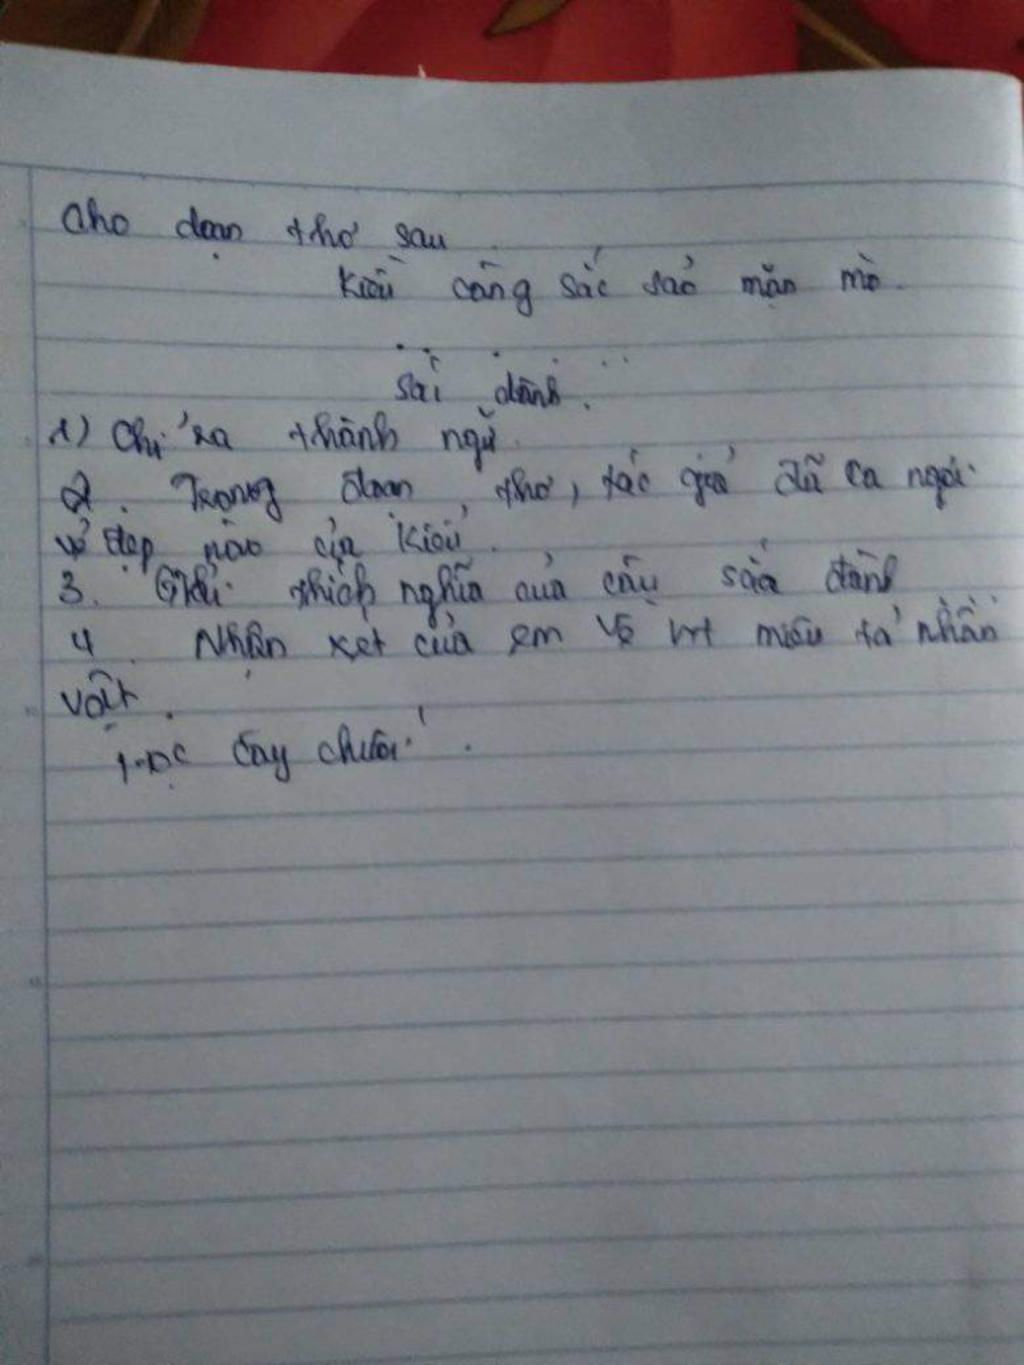 Cho đoạn thơ sau
Kiều càng sắc sảo mặn mà
... sai đành.
1) Chỉ ra thành ngữ
2. Trong đoạn thơ, tác giả đã ca ngợi
vẻ đẹp nào của Kiều.
3. Giải thích nghĩa của câu đành
4. Nhận xét của em về nt miêu tả nhân
vật.
cây chuối.